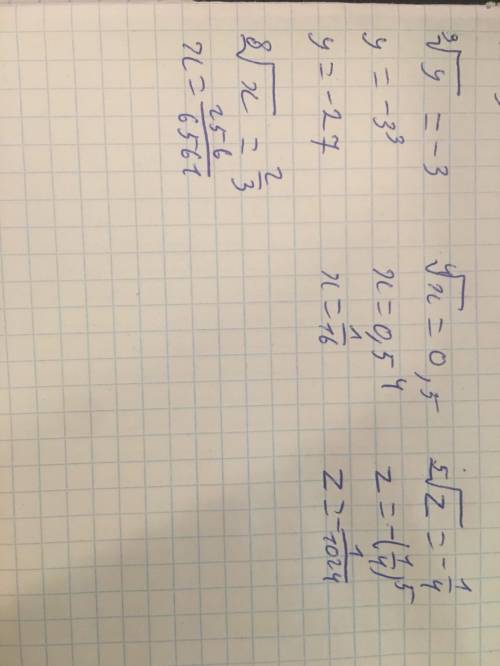 ∛y = -3
y = -3³
y = -27
⁸√x = 2/3
x = 256/6561
⁴√x = 0,5
x = 0,5⁴
x = 1/16
⁵√z = -1/4
z = -(1/4)⁵
z = -1/1024